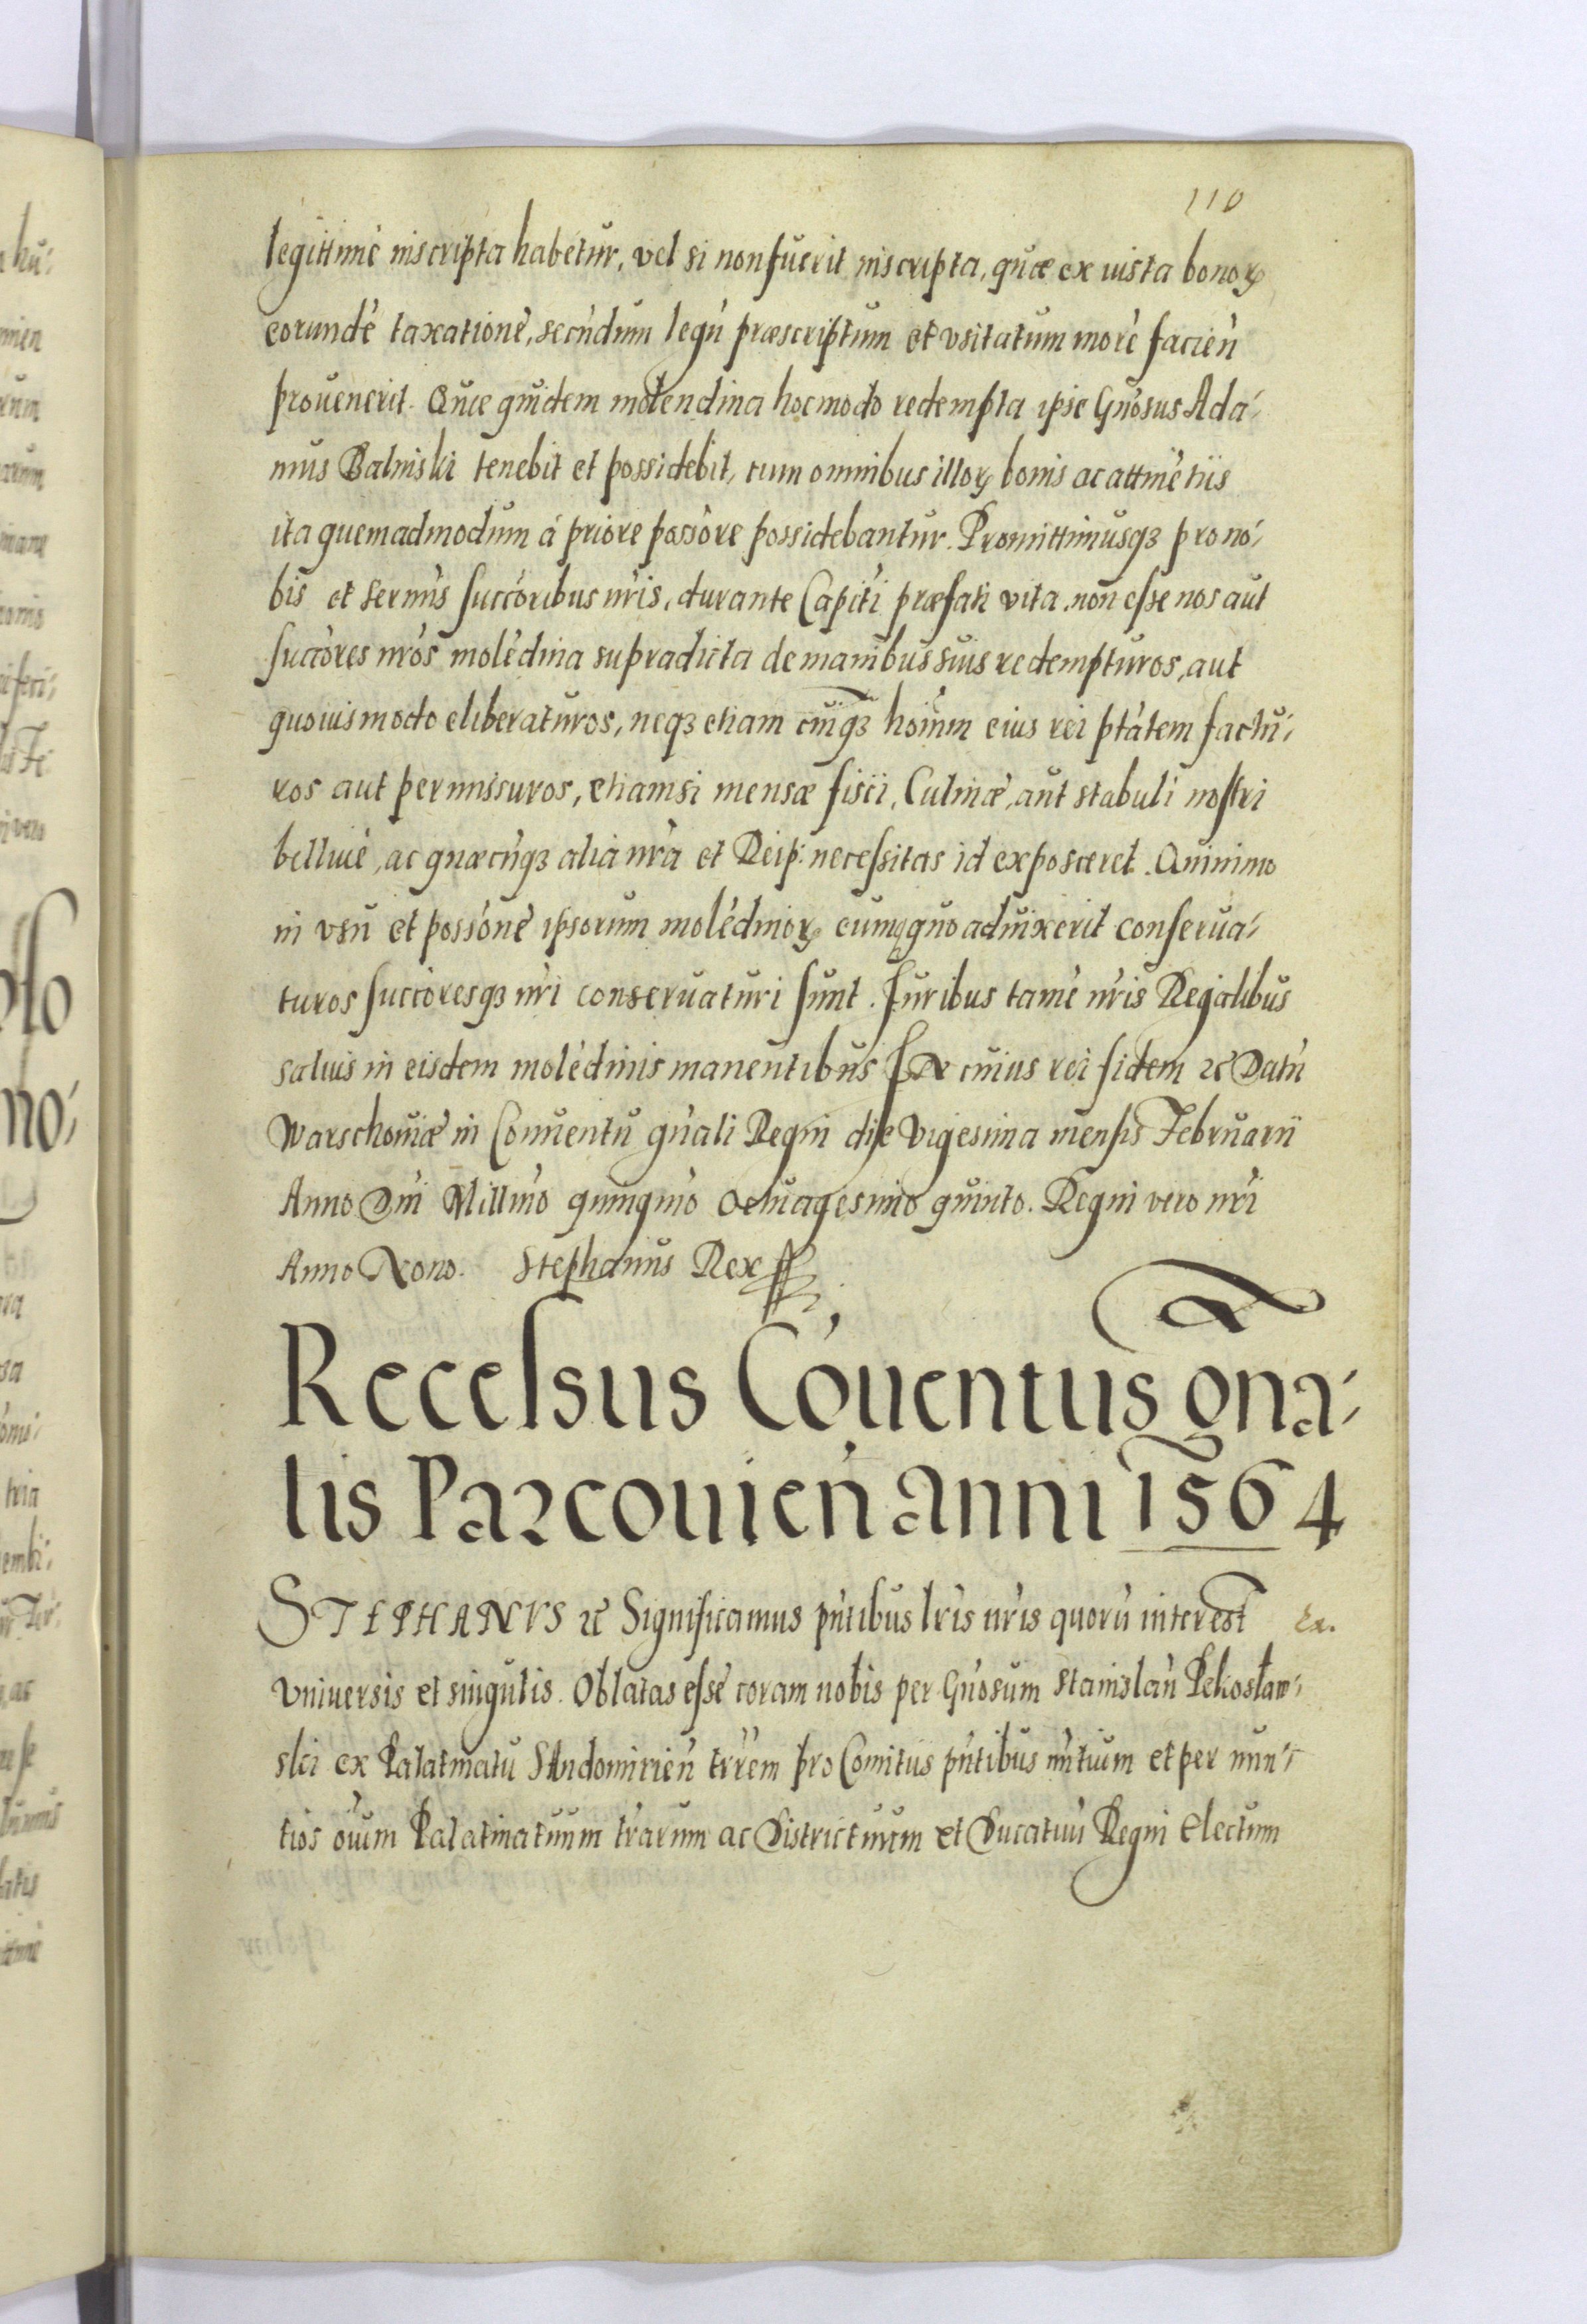 110
legittime inscripta habetur, vel si non fuerit inscripta, quæ ex iusta bonoꝝ
eorundē taxatione, secūdum legū præscriptum et vsitatum morē facień
prouenerit. Quæ quidem molendina hoc modo redempta ipse Gńosus Ada-
mus Balinski tenebit et possidebit, cum omnibus illoꝝ bonis ac attinētiis
ita quemadmodum á priore possōre possidebantur. Promittimusqꝫ pro no-
bis et sermīs succōribus nŕis, durante Capīti præfati vita, non esse nos aut
succōres nŕos molēdina supradicta de manibus suis redempturos, aut
quouismodo eliberaturos, neqꝫ etiam cuiqꝫ hoīum eius rei ptātem factu-
ros aut permissuros, etiamsi mensæ fisci, Culinæ, aut stabuli nostri
bellicē, ac quæcūqꝫ alia nŕa et Reip: necessitas id exposceret. Quinimo
in vsū et possōnē ipsorum molēdinoꝝ eum quo aduixerit conserua-
turos succōresqꝫ nŕi conseruaturi sunt. Iuribus tamē nŕis Regalibus
saluis in eisdem molēdinis manentibus In cuius rei fidem ꝛc Datū
Warschouiæ in Conuentu gńali Regni die Vigesima mensis Februarii
Anno Dńi Millīno quingńo Octuagesimo quinto. Regni vero nŕi
Anno Nono. Stephanus Rex
Recessus Cōuentus gna-
lis Parcouień anni 1564
STEPHANVS ꝛc Significamus pńtibus lŕis nŕis quorū interest Ex.
Vniuersis et singulis. Oblatas esse coram nobis per Gńosum Stanislaū Pekosław-
ski ex Palatinatu SAndomirień tŕrem pro Comitiis pńtibus nńtium et per nun-
tios oīum Palatinatuum tŕarum ac Districtuum et Ducatuū Regni Electum